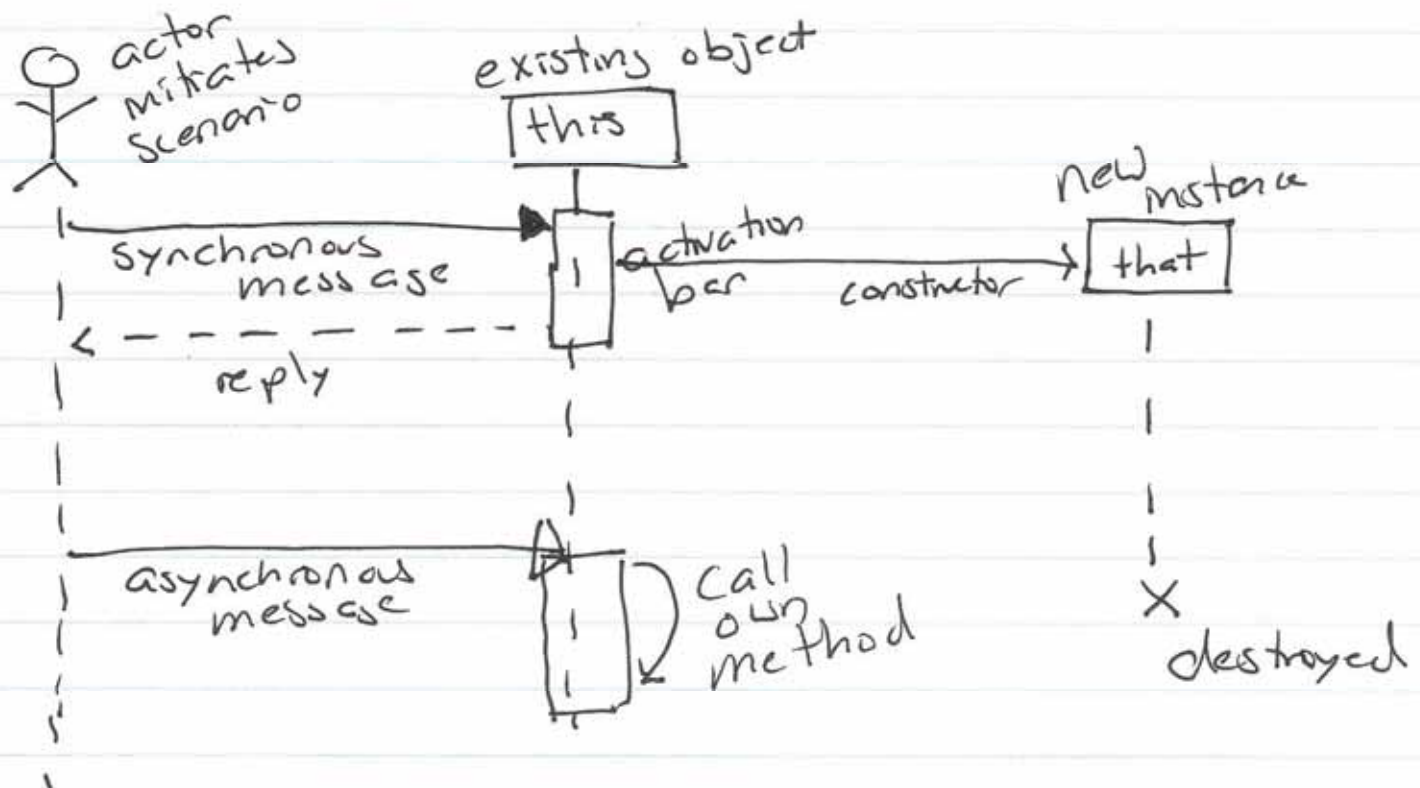 actor
initiates
scenario
existing object
this
new
instance
that
synchronous
message
activation
bar
constructor
reply
asynchronous
message
call
own
method
destroyed